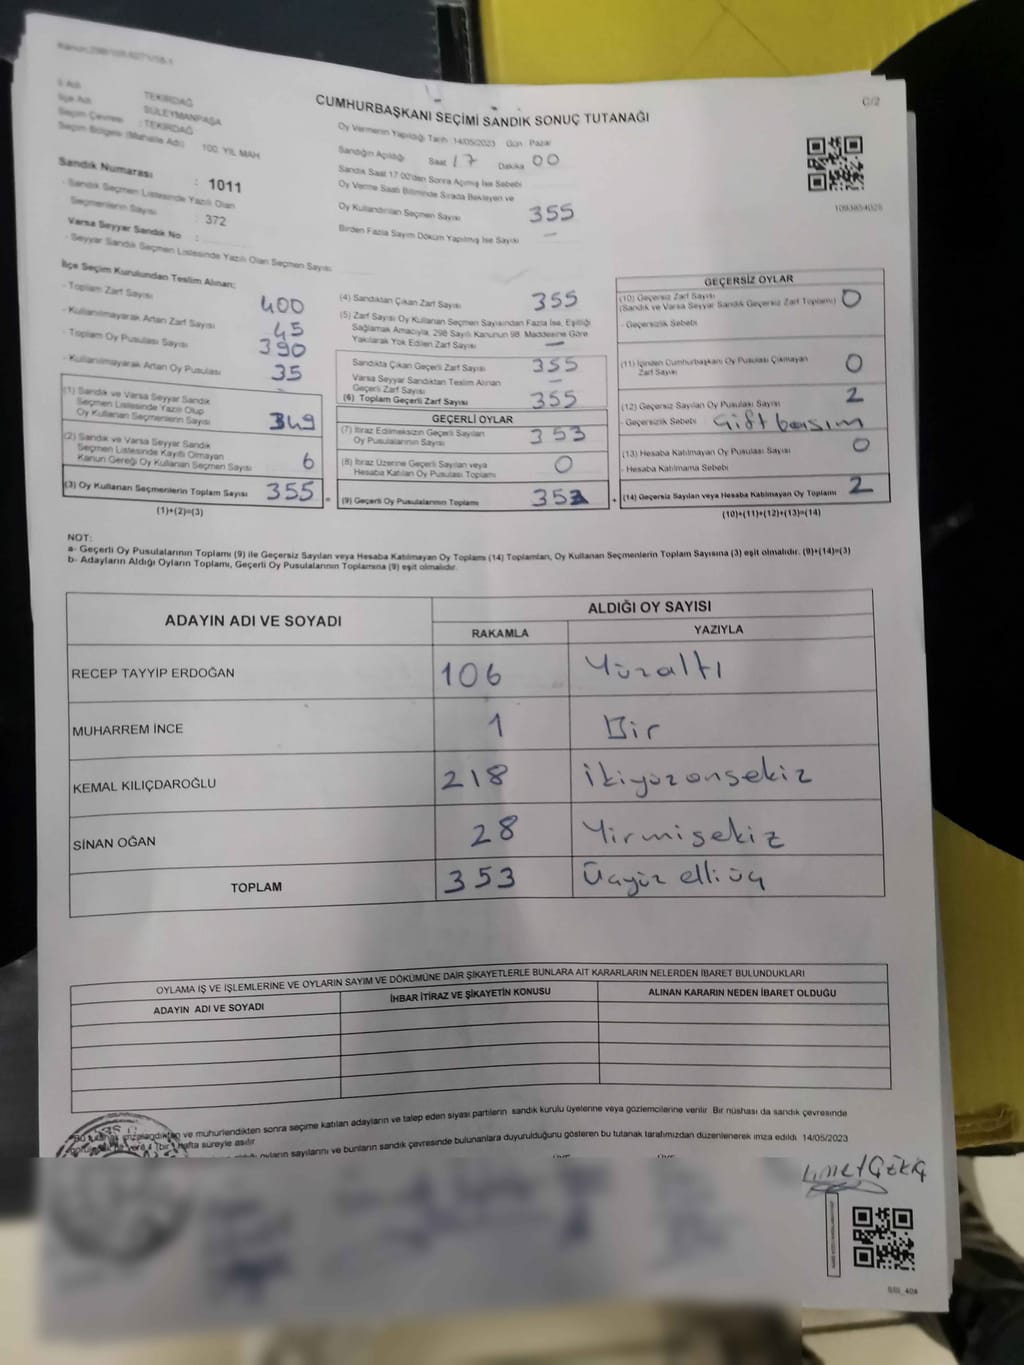 C/2
İl Adı TEKİRDAĞ
İlçe Adı SÜLEYMANPAŞA
Seçim Çevresi : TEKİRDAĞ
Seçim Bölgesi (Mahalle Adı) 100. YIL MAH
CUMHURBAŞKANI SEÇİMİ SANDIK SONUÇ TUTANAĞI
Oy Vermenin Yapıldığı Tarih 14/05/2023 Gün Pazar
Sandığın Açıldığı Saat 17 Dakika 00
Sandık Saat 17.00'den Sonra Açılmış İse Sebebi
Oy Verme Saati Bitiminde Sırada Bekleyen ve
Oy Kullandırılan Seçmen Sayısı 355
Birden Fazla Sayım Döküm Yapılmış İse Sayısı —
1093854025
Sandık Numarası : 1011
- Sandık Seçmen Listesinde Yazılı Olan
Seçmenlerin Sayısı : 372
Varsa Seyyar Sandık No :
- Seyyar Sandık Seçmen Listesinde Yazılı Olan Seçmen Sayısı
İlçe Seçim Kurulundan Teslim Alınan;
- Toplam Zarf Sayısı 400
- Kullanılmayarak Artan Zarf Sayısı 45
- Toplam Oy Pusulası Sayısı 390
- Kullanılmayarak Artan Oy Pusulası 35
(1) Sandık ve Varsa Seyyar Sandık
Seçmen Listesinde Yazılı Olup
Oy Kullanan Seçmenlerin Sayısı 349
(2) Sandık ve Varsa Seyyar Sandık
Seçmen Listesinde Kayıtlı Olmayan
Kanun Gereği Oy Kullanan Seçmen Sayısı 6
(3) Oy Kullanan Seçmenlerin Toplam Sayısı 355 =
(1)+(2)=(3)
(4) Sandıktan Çıkan Zarf Sayısı 355
(5) Zarf Sayısı Oy Kullanan Seçmen Sayısından Fazla İse, Eşitliği
Sağlamak Amacıyla, 298 Sayılı Kanunun 98. Maddesine Göre
Yakılarak Yok Edilen Zarf Sayısı —
Sandıkta Çıkan Geçerli Zarf Sayısı 355
Varsa Seyyar Sandıktan Teslim Alınan
Geçerli Zarf Sayısı —
(6) Toplam Geçerli Zarf Sayısı 355
GEÇERLİ OYLAR
(7) İtiraz Edilmeksizin Geçerli Sayılan
Oy Pusulalarının Sayısı 353
(8) İtiraz Üzerine Geçerli Sayılan veya
Hesaba Katılan Oy Pusulası Toplamı 0
(9) Geçerli Oy Pusulalarının Toplamı 353 +
GEÇERSİZ OYLAR
(10) Geçersiz Zarf Sayısı 0
(Sandık ve Varsa Seyyar Sandık Geçersiz Zarf Toplamı)
- Geçersizlik Sebebi
(11) İçinden Cumhurbaşkanı Oy Pusulası Çıkmayan
Zarf Sayısı 0
(12) Geçersiz Sayılan Oy Pusulası Sayısı 2
- Geçersizlik Sebebi Çift basım
(13) Hesaba Katılmayan Oy Pusulası Sayısı 0
- Hesaba Katılmama Sebebi
(14) Geçersiz Sayılan veya Hesaba Katılmayan Oy Toplamı 2
(10)+(11)+(12)+(13)=(14)
NOT:
a- Geçerli Oy Pusulalarının Toplamı (9) ile Geçersiz Sayılan veya Hesaba Katılmayan Oy Toplamı (14) Toplamları, Oy Kullanan Seçmenlerin Toplam Sayısına (3) eşit olmalıdır. (9)+(14)=(3)
b- Adayların Aldığı Oyların Toplamı, Geçerli Oy Pusulalarının Toplamına (9) eşit olmalıdır.
ADAYIN ADI VE SOYADI ALDIĞI OY SAYISI
RAKAMLA YAZIYLA
RECEP TAYYİP ERDOĞAN 106 Yüzaltı
MUHARREM İNCE 1 Bir
KEMAL KILIÇDAROĞLU 218 İkiyüzonsekiz
SİNAN OĞAN 28 Yirmisekiz
TOPLAM 353 Üçyüz elli üç
OYLAMA İŞ VE İŞLEMLERİNE VE OYLARIN SAYIM VE DÖKÜMÜNE DAİR ŞİKAYETLERLE BUNLARA AİT KARARLARIN NELERDEN İBARET BULUNDUKLARI
ADAYIN ADI VE SOYADI İHBAR İTİRAZ VE ŞİKAYETİN KONUSU ALINAN KARARIN NEDEN İBARET OLDUĞU
Bu tutanak imzalandıktan ve mühürlendikten sonra seçime katılan adayların ve talep eden siyasi partilerin sandık kurulu üyelerine veya gözlemcilerine verilir. Bir nüshası da sandık çevresinde
bir hafta süreyle asılır
oyların sayılarını ve bunların sandık çevresinde bulunanlara duyurulduğunu gösteren bu tutanak tarafımızdan düzenlenerek imza edildi 14/05/2023